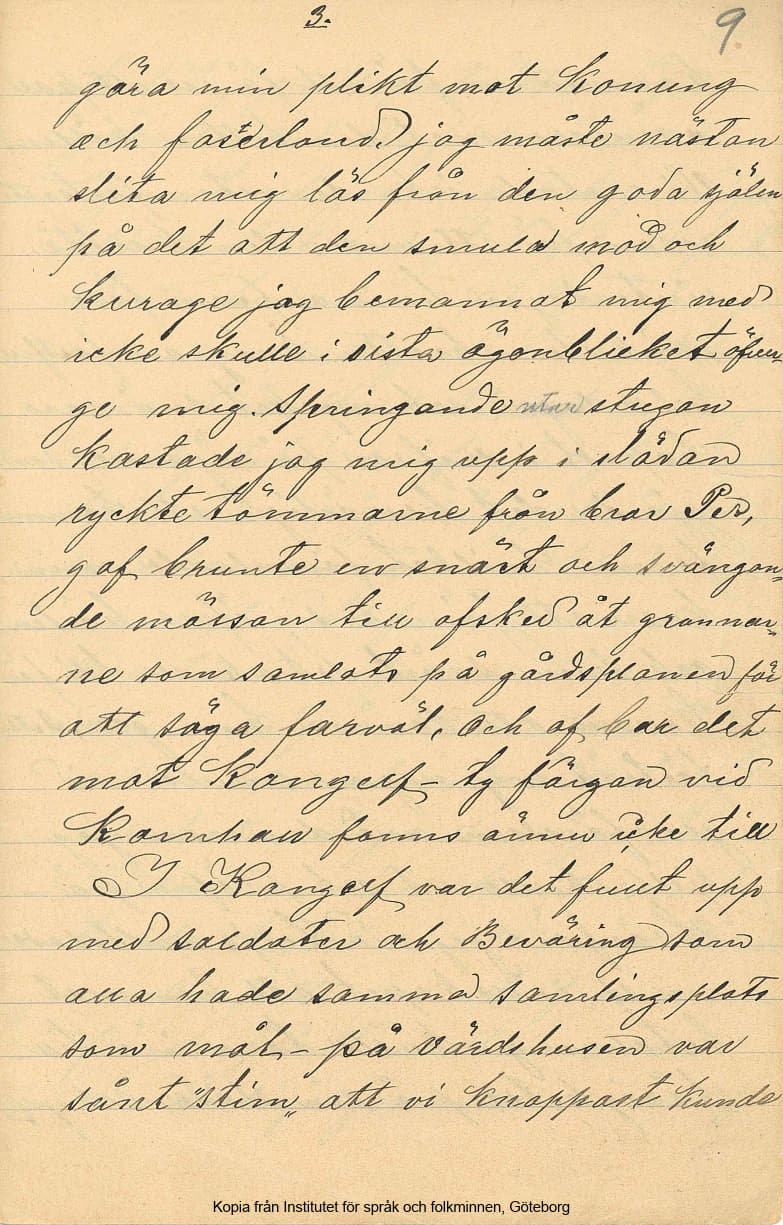 3.
9
göra min plikt mot Konung
och fosterland. jag måste nästan
slita mig lös från den goda själen
på det att den smula mod och
kurage jag bemannat mig med
icke skulle i sista ögonblicket öfver-
ge mig. Springande utur stugan
kastade jag mig upp i slädan
ryckte tömmarne från bror Per,
gaf brunte en snärt och svängan-
de mössan till afsked åt grannar-
ne som samlats på gårdsplanen för
att säga farväl, och af bar det
mot Kongelf – ty färgan vid
Kornhall fanns ännu icke till
I Kongelf var det fullt upp
med soldater och Beväring som
alla hade samma samlingsplats
som mål – på värdshusen var
sånt "stim" att vi knappast kunde
Kopia från Institutet för språk och folkminnen, Göteborg